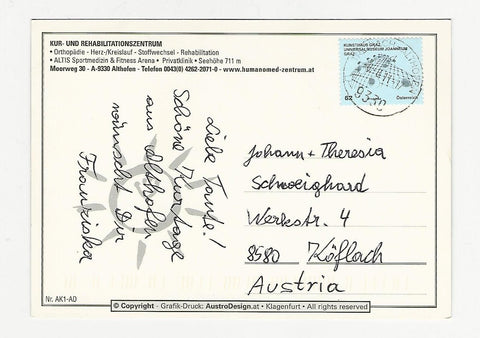 KUR- UND REHABILITATIONSZENTRUM
• Orthopädie - Herz-/Kreislauf - Stoffwechsel - Rehabilitation
• ALTIS Sportmedizin & Fitness Arena • Privatklinik • Seehöhe 711 m
Moorweg 30 - A-9330 Althofen - Telefon 0043(0) 4262-2071-0 - www.humanomed-zentrum.at
KUNSTHAUS GRAZ
UNIVERSALMUSEUM JOANNEUM
GRAZ
62
Österreich
9330
Liebe Tante!
Schöne Kurtage
aus Althofen
wünscht Dir
Franziska
Johann + Theresia
Schweighard
Werkstr. 4
8580 Köflach
Austria
Nr. AK1-AD
© Copyright - Grafik-Druck: AustroDesign.at • Klagenfurt • All rights reserved